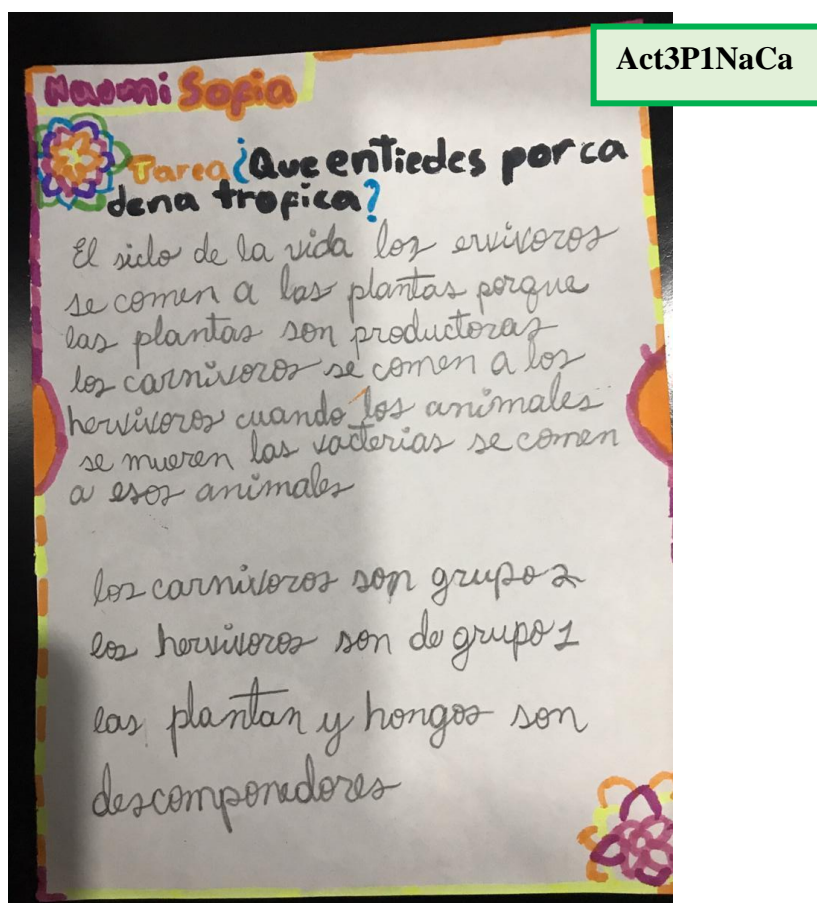 Act3P1NaCa
Naomi Sofia
Tarea ¿Que entiedes por ca
dena trofica?
El siclo de la vida los ervivoros
se comen a las plantas porque
las plantas son productoras
los carnivoros se comen a los
hervivoros cuando los animales
se mueren las vacterias se comen
a esos animales
los carnivoros son grupo 2
los hervivoros son de grupo 1
las plantan y hongos son
descomponedores